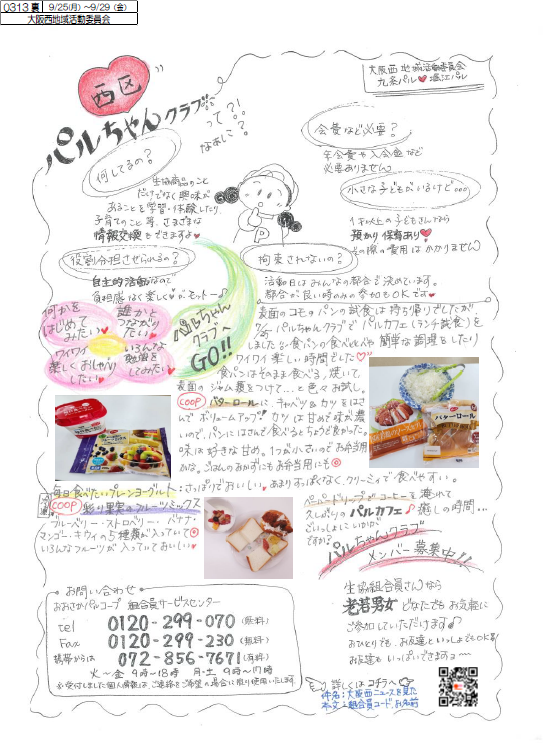 0313 裏 9/25(月)～9/29(金)
大阪西地域活動委員会
大阪西地域活動委員会
九条パル♥堀江パル
西区
パルちゃんクラブ
って？！
なぁに？
何してるの？
生協商品のこと
だけでなく興味が
あることを学習・体験したり
子育てのこと等、さまざまな
情報交換もできますよ♥
会費など必要？
年会費や入会金など
必要ありません
小さな子どもがいるけど。。。
1才以上の子どもさんなら
預かり保育あり♥
その際の費用はかかりません
役割分担させられるの？
自主的活動なので
負担感なく楽しく がモットー♪
拘束されないの？
活動日はみんなの都合で決めています。
都合が良い時のみの参加もOKです♥
何かを
はじめて
みたい♥
誰かと
つながり
たい！
ワイワイ
楽しくおしゃべり
したい♥
いろんな
勉強を
してみたい
パルちゃん
クラブへ
GO!!
表面のコモのパンの試食は持ち帰りでしたが
パルちゃんクラブで パルカフェ(ランチ試食)を
しました。食パンの食べ比べや 簡単な調理をしたり
ワイワイ楽しい時間でした♥
食パンはそのまま食べる、焼いて
表面のジャム類をつけて…と色々お試し。
COOP バターロールに、キャベツ&カツをはさ
んでボリュームアップ！カツは甘めで味が濃
いので、パンにはさんで食べるとちょうど良かった。
味は好きな甘め。1つが小さいのでお弁当用
かな。ごはんのおかずにもお弁当用にも
毎日食べたいプレーンヨーグルト：さっぱりでおいしい♥あまりすっぱくなく、クリーミィで食べやすい。
COOP 彩り果実のフルーツミックス
ブルーベリー・ストロベリー・バナナ・
マンゴー・キウイの5種類が入っていて
いろんなフルーツが入っていておいしい♥
ドリップコーヒーを淹れて
久しぶりのパルカフェ♪癒しの時間…
ごいっしょにいかが
ですか？
パルちゃんクラブ
メンバー募集中!!
生協組合員さんなら
老若男女 どなたでもお気軽に
ご参加していただけます♪
おひとりでも、お友達といっしょでもOK
お友達もいっぱいできますョ〜
お問い合わせ
おおさかパルコープ 組合員サービスセンター
Tel 0120-299-070(無料)
Fax 0120-299-230(無料)
携帯からは 072-856-7671(有料)
火〜金 9時〜18時 月・土 9時〜17時
※受付しました個人情報は、ご連絡をご希望の場合に限り使用いたします
詳しくはコチラへ
件名：大阪西ニュースを見た
本文：組合員コード、お名前